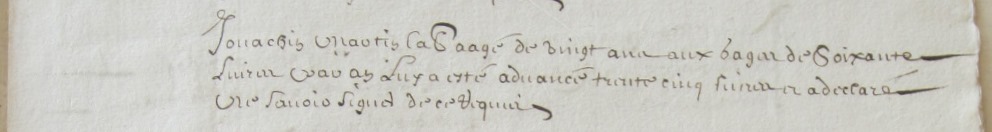 Jouachin Martin laB aagé de vingt ans aux gages de Soixante
Livres par an Luy a esté advancé trente cinq livres et a declaré
ne savoir signer de ce requis